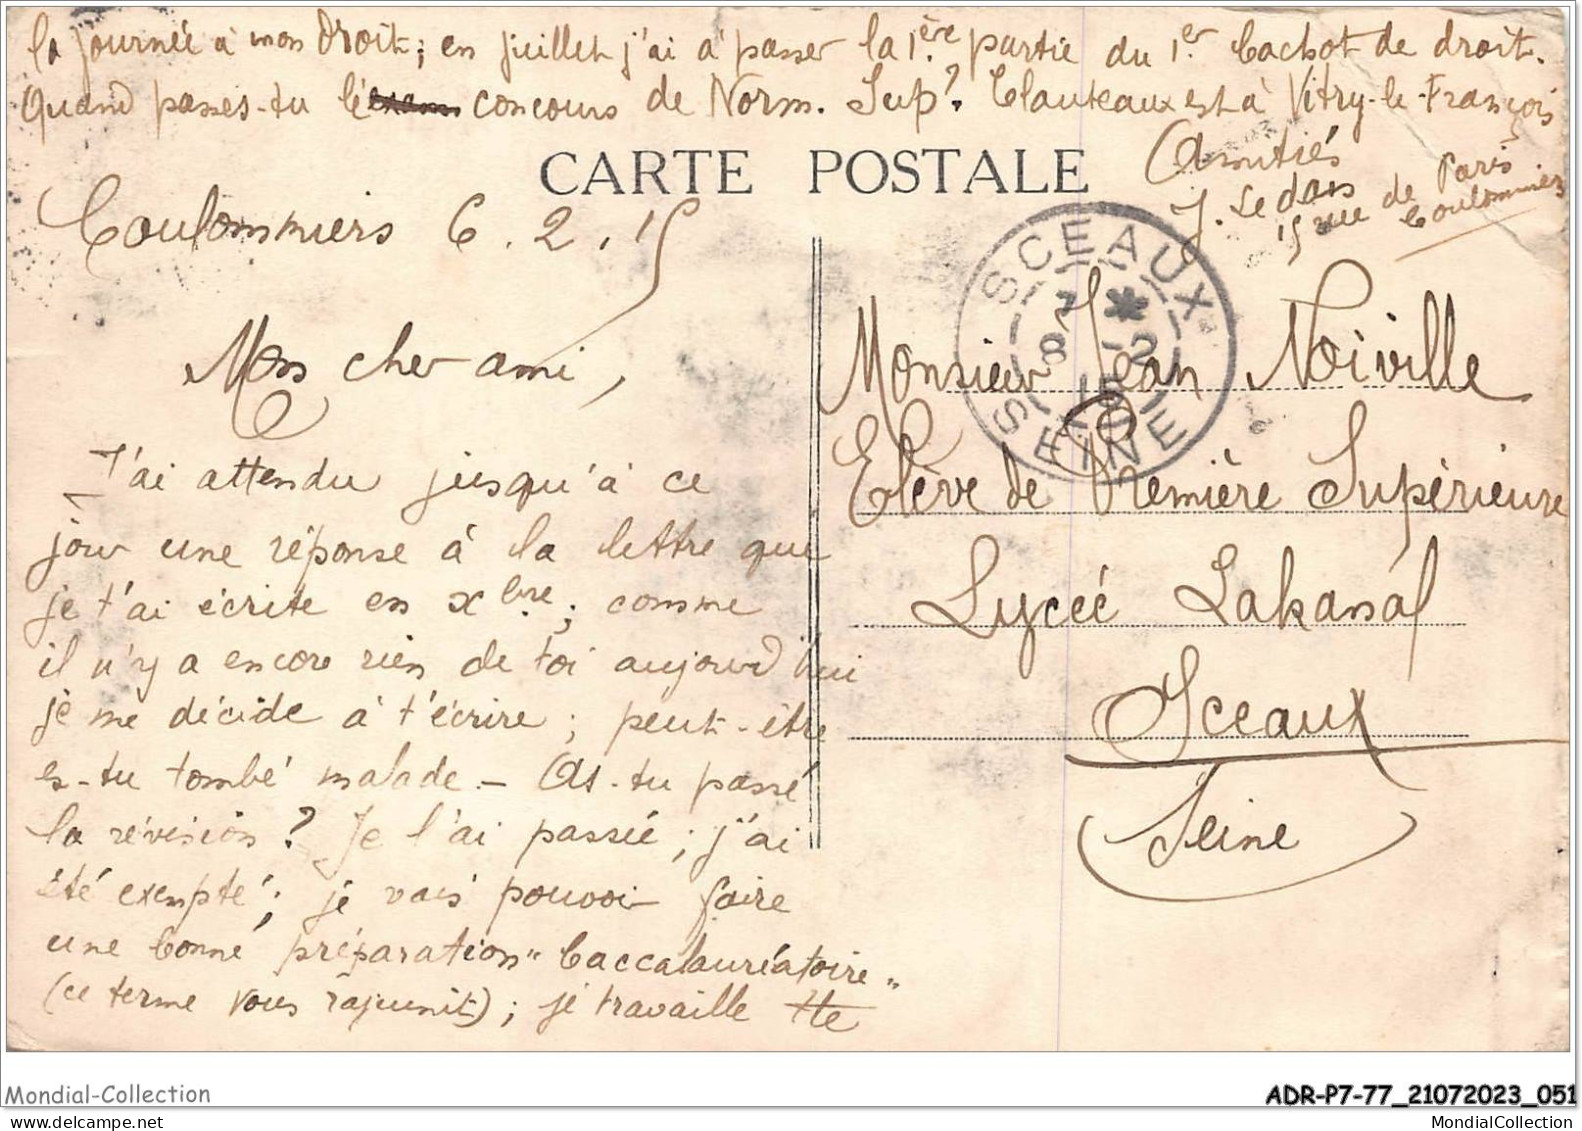 la journée à mon Droit; en juillet j'ai à passer la 1ère partie du 1er bachot de droit.
Quand passes-tu le concours de Norm. Sup? Clauteaux est à Vitry-le-François
Amitiés
J. Ledans
15 rue de Paris
Coulommiers
CARTE POSTALE
Coulommiers 6.2.15
Mon cher ami,
J'ai attendu jusqu'à ce
jour une réponse à la lettre que
je t'ai écrite en Xbre; comme
il n'y a encore rien de toi aujourd'hui
je me décide à t'écrire; peut-être
es-tu tombé malade - As-tu passé
la révision? Je l'ai passée; j'ai
été exempté; je vais pouvoir faire
une bonne préparation "baccalauréatoire"
(ce terme vous rajeunit); je travaille tte
SCEAUX
7 * 2
8 15
SEINE
Monsieur Jean Noiville
Elève de Première Supérieure
Lycée Lakanal
Sceaux
Seine
Mondial-Collection
ADR-P7-77_21072023_051
MondialCollection